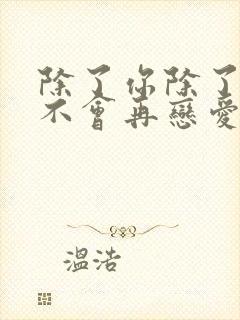 除了你除了
不會再戀愛
溫浩